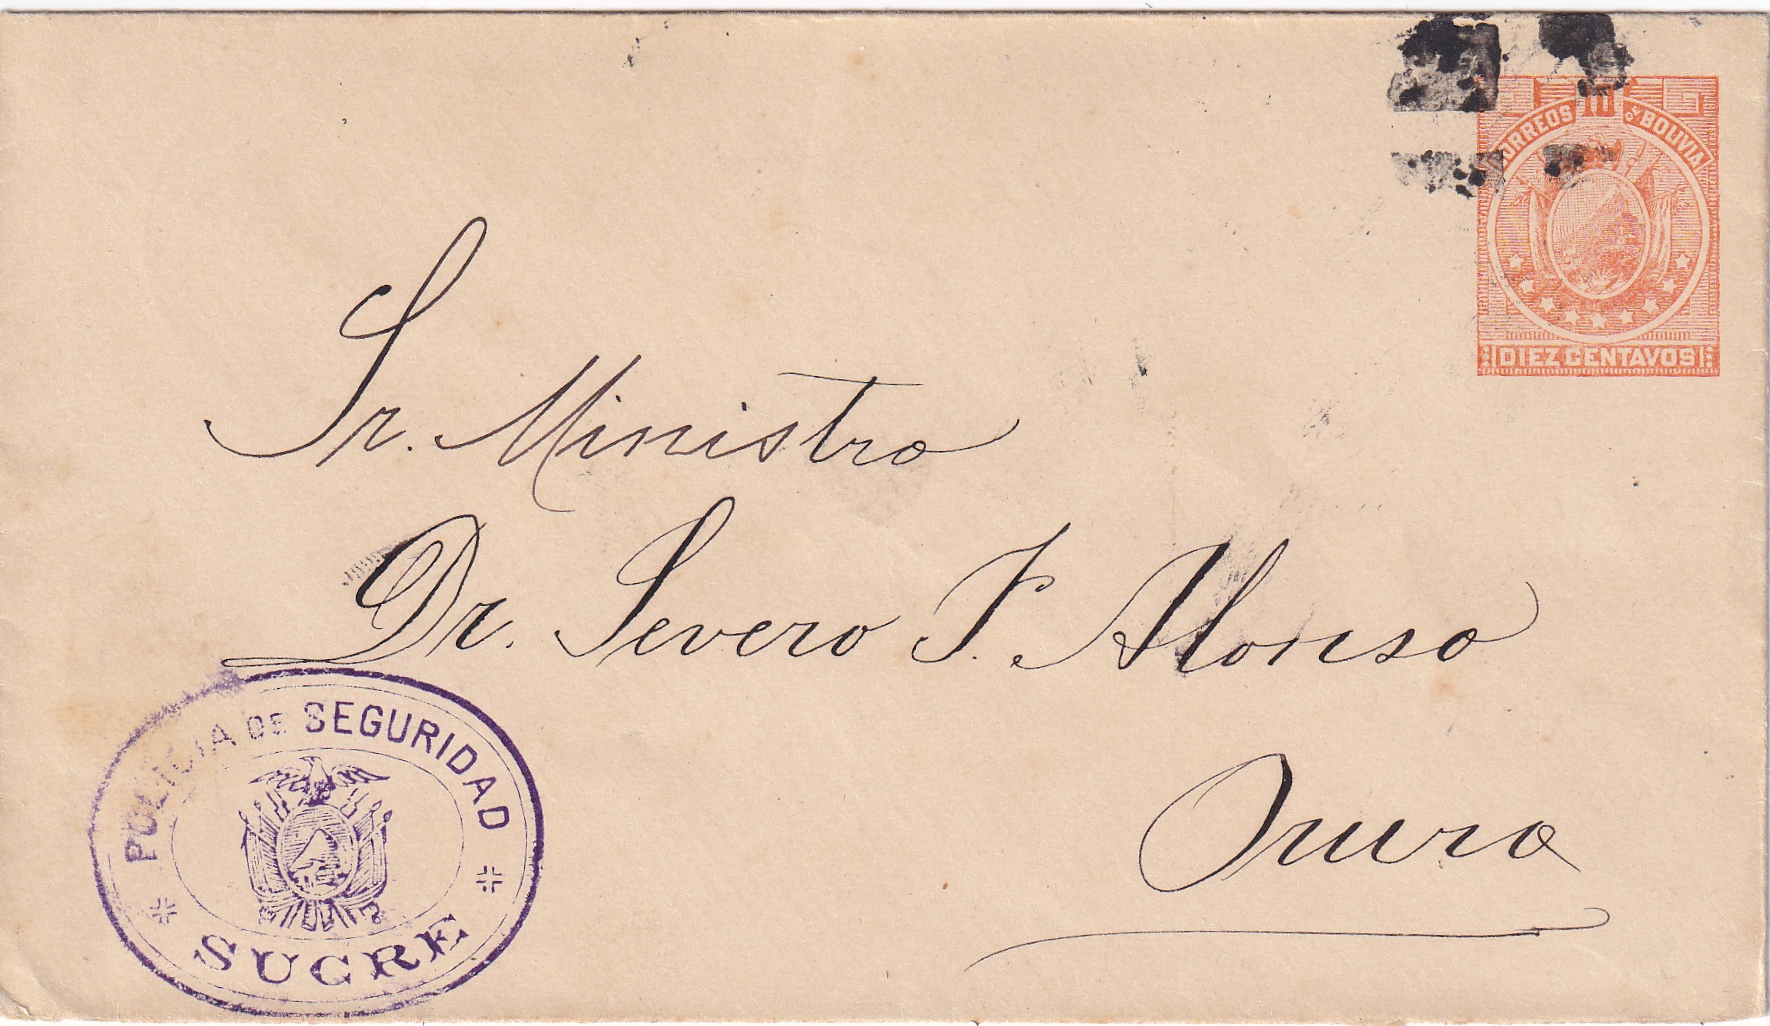 10
CORREOS DE BOLIVIA
DIEZ CENTAVOS
Sr. Ministro
Dr. Severo F. Alonso
Oruro
POLICIA DE SEGURIDAD
SUCRE